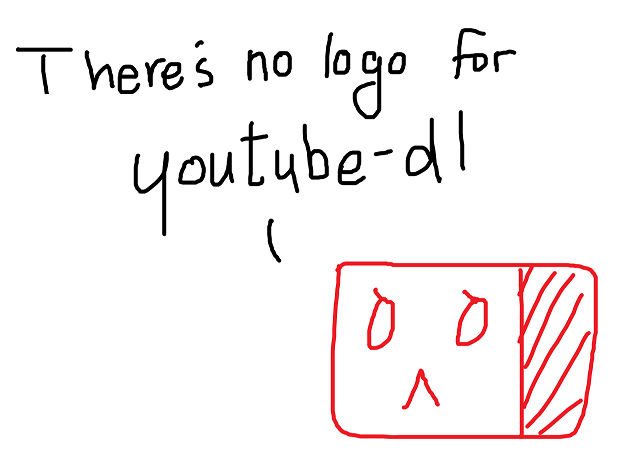 There's no logo for
youtube-dl